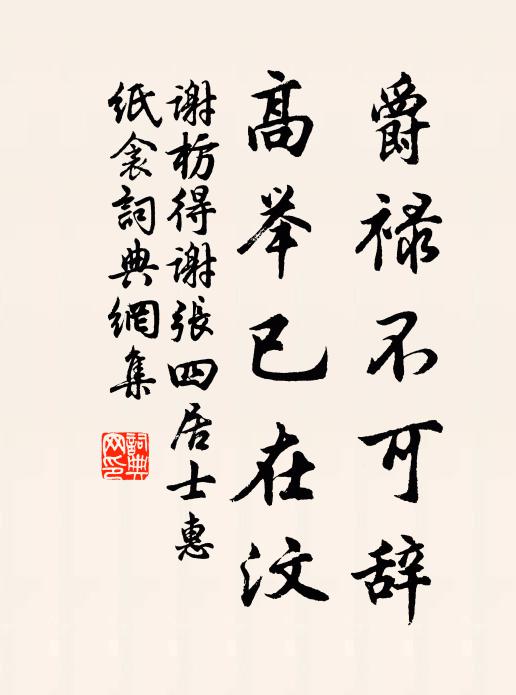 爵禄不可辞
高举已在汶
谢枋得谢张四居士惠
纸衾词典網集
詞典網印